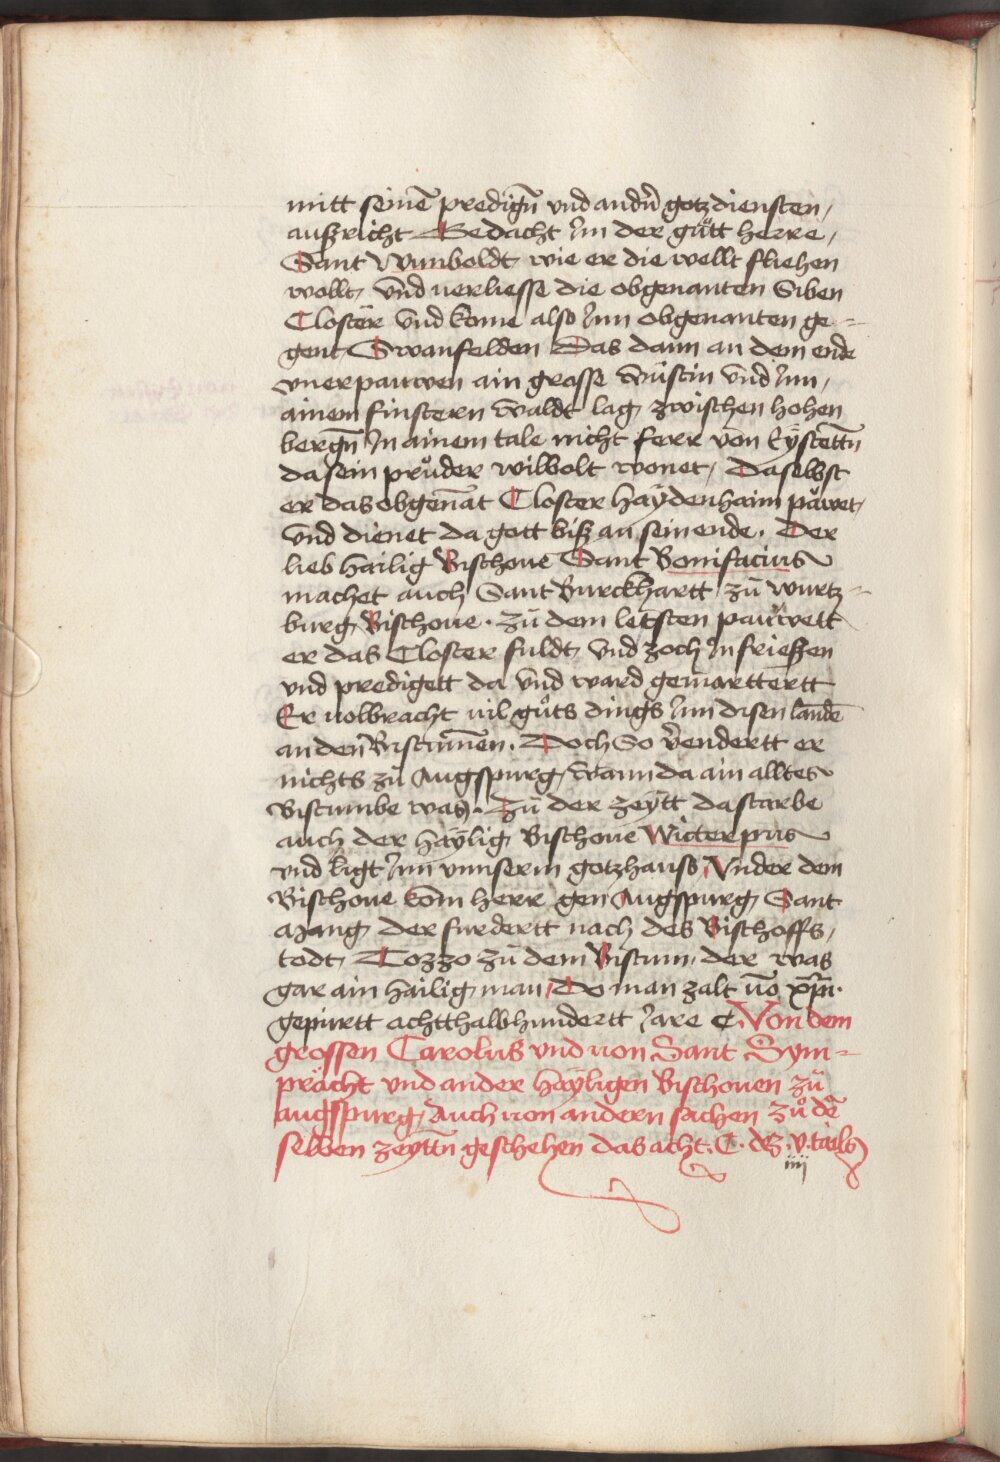 mitt seinē predign̄ vnd andn̄ gotzdiensten /
auszricht Gedacht Im der gůtt herre /
Sant Wunboldt wie er die wellt fliehen
wollt / vnd verliesse die obgenanten Siben
Closter vnd kome also Inn obgenanten ge=
gent Swanfelden Das dann an dem ende
vnerpauwen ain grosse wüstin vnd Inn /
ainem finstern waldt lag / zwischen hohen
bergn̄ In ainem tale nicht ferr von Eÿstettn̄
da sein průder wilbolt wonet / Daselbst
er das obgenāt Closter haÿdenhaim pawet /
vnd dienet da gott bisz an sein ende . Der
lieb hailig Bischoue Sant Bonifacius
machet auch Sant Burckhartt zů wurtz=
burg / Bischoue . zů dem letsten pauwett
er das Closter fuldt / vnd zoch In frieszen
vnd predigett da vnd ward gemarttertt
Er volbracht vil gůts dings Inn disen landē
an den Bistumen . Doch So v̄endertt er
nichts zů Augspurg / wann da ain alltes
Bistumbe was . Zů der zeÿtt da starbe
auch der haÿlig Bischoue Wicterpus
vnd ligt Inn vnnserm gotzhauss / Vnder dem
Bischoue kom herr gen Augspurg / Sant
Mang / der furdertt nach des Bischoffs /
todt / Tozzo zů dem Bistum / der was
gar ain hailig man / Do man zalt vō xp̄n .
gepurtt achtthalbhundertt Jare C Von dem
grossen Carolus vnd von Sant Sym=
prächt vnd ander haÿligen Bischouen zů
augspurg / Auch von andern sachen zů dē
selben zeyttn̄ geschehen das acht . C . dez . v . tails
iiij